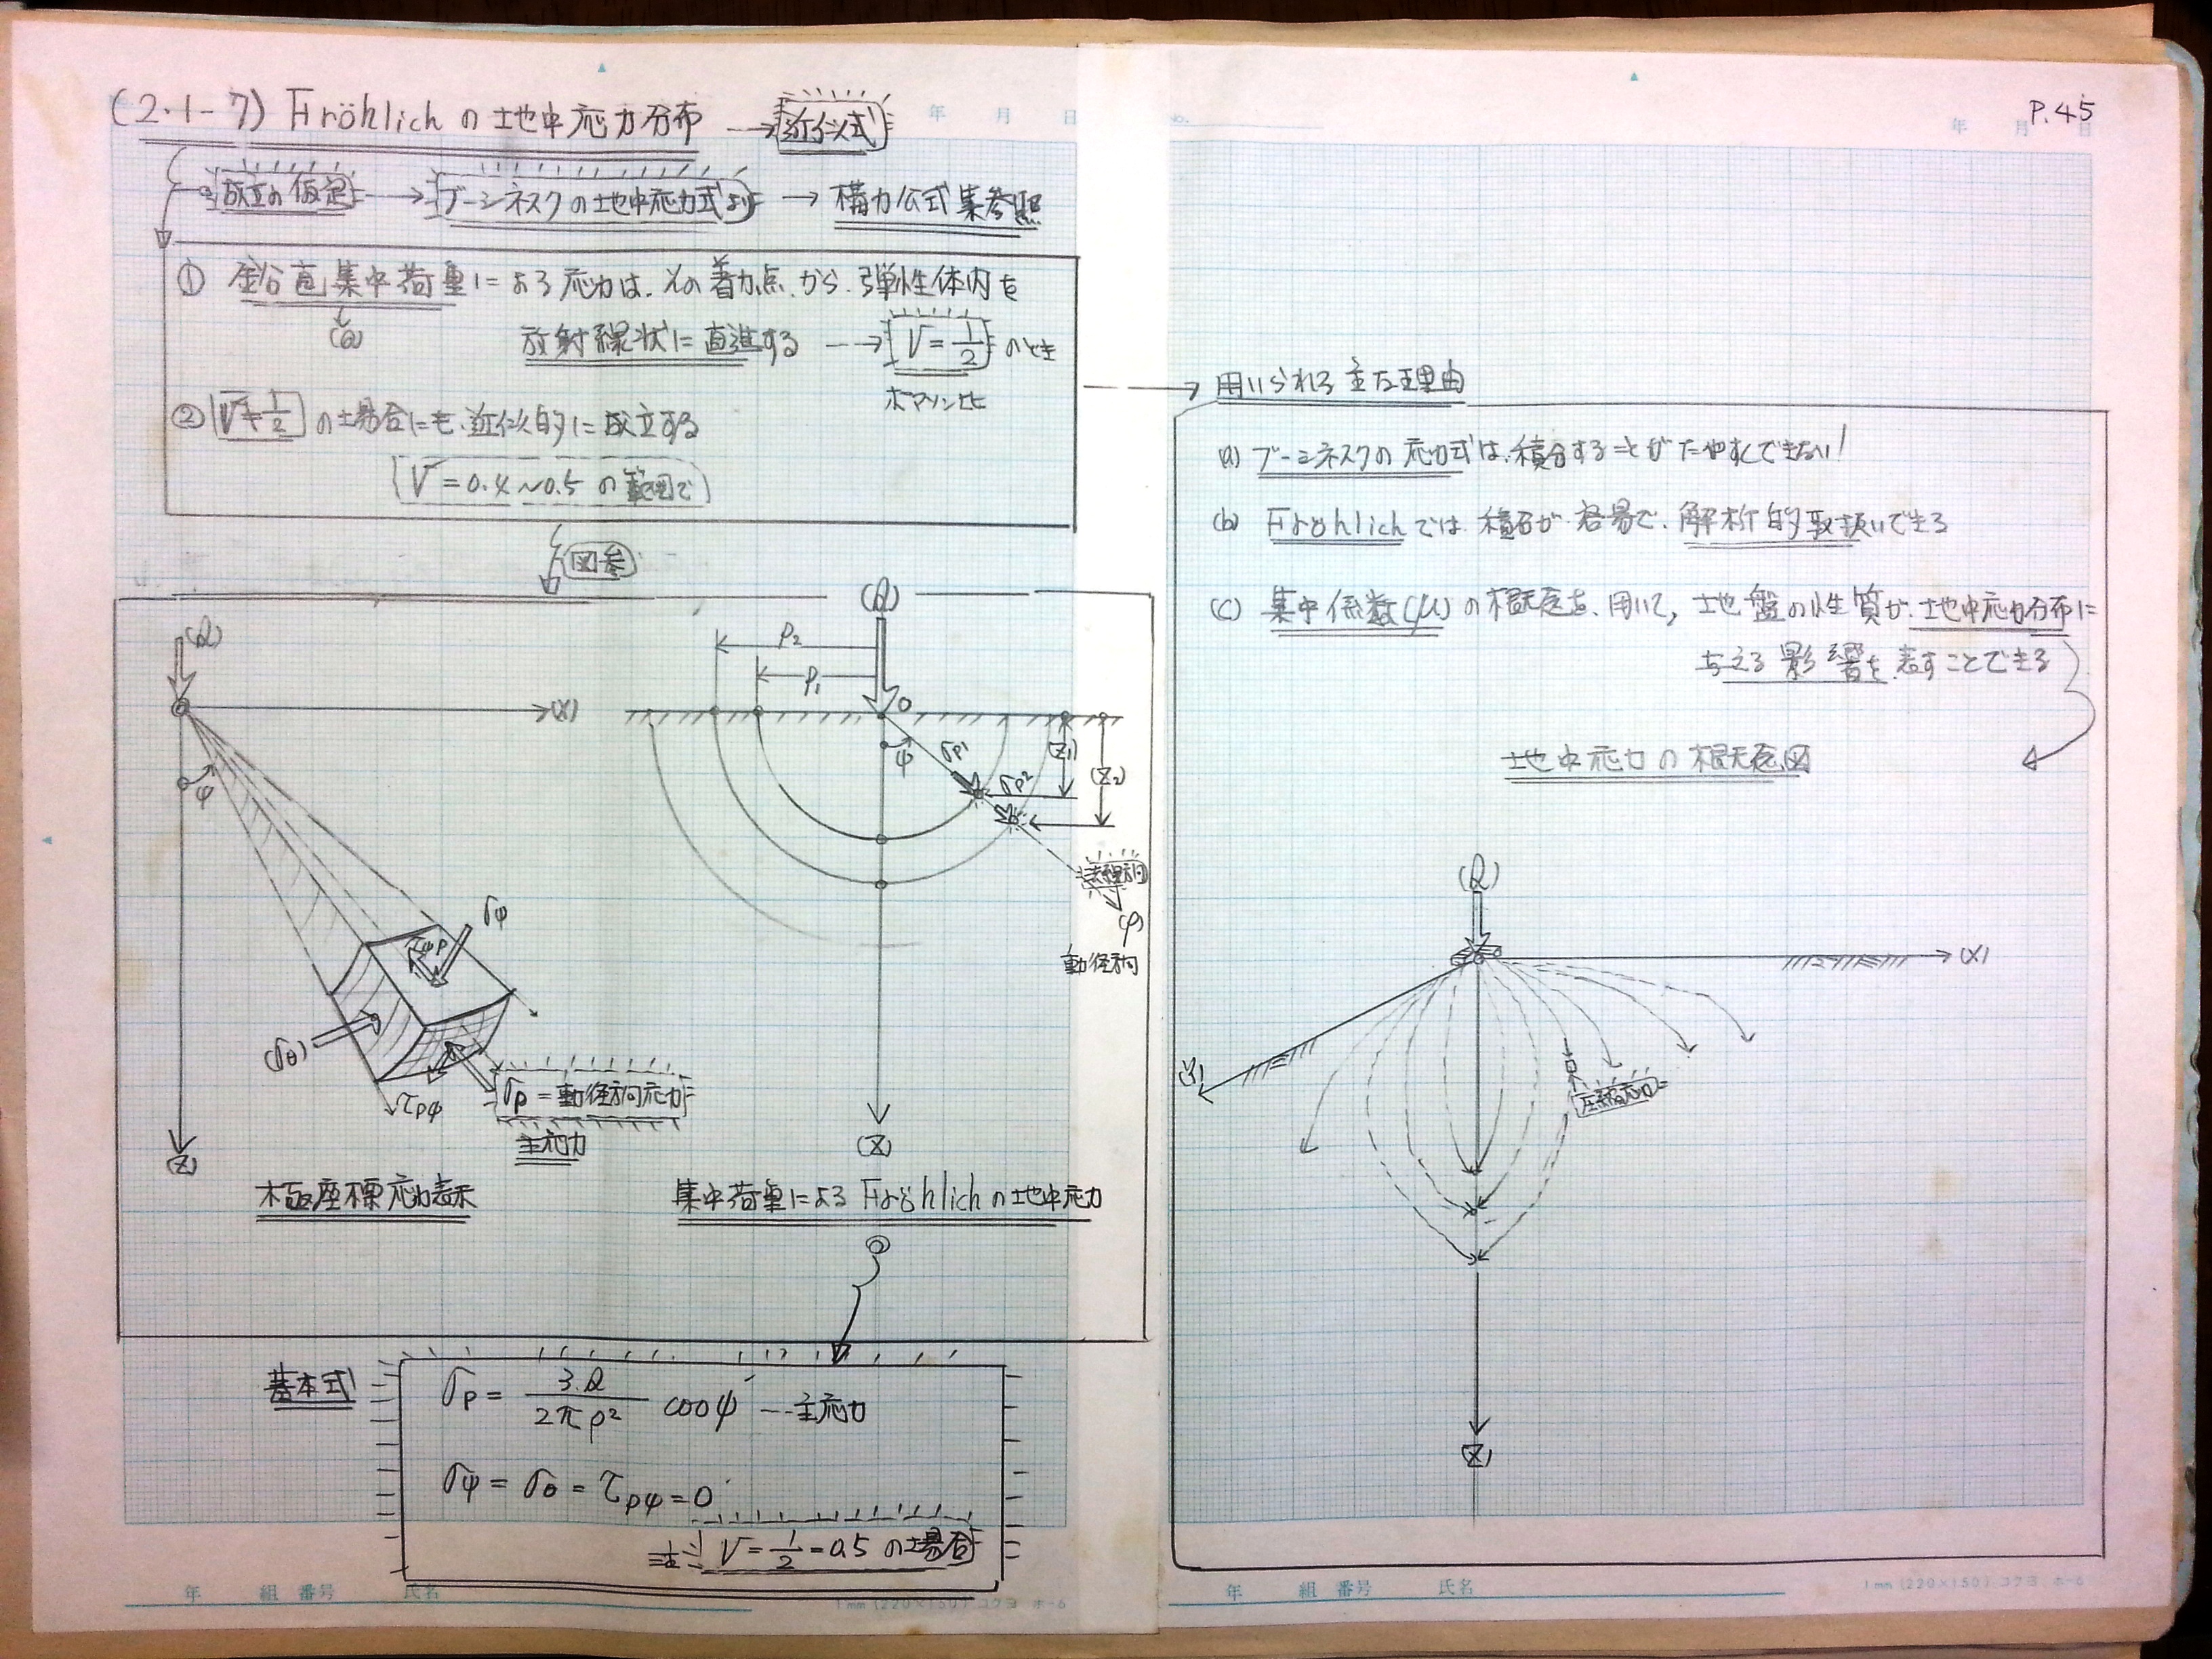 (2.1-7) Fröhlich の地中応力分布 → 近似式
年 月 日
成立の仮定 → ブーシネスクの地中応力式より → 構力公式集参照
① 鉛直集中荷重による応力は、その着力点から弾性体内を
(Q)
放射線状に直進する → ν = 1/2 のとき
ポアソン比
② ν ≠ 1/2 の場合にも、近似的に成立する
(ν = 0.4 ~ 0.5 の範囲で)
図参
(Q)
(X)
ψ
σψ
τψρ
(σθ)
τρψ
σρ = 動径方向応力
主応力
(Z)
極座標応力表示
(Q)
ρ2
ρ1
O
ψ
σρ1
σρ2
(Z1)
(Z2)
法線方向
(ρ)
動径方向
(Z)
集中荷重による Fröhlich の地中応力
基本式
σρ = 3.Q / 2πρ² cosψ --- 主応力
σψ = σθ = τρψ = 0
ν = 1/2 = 0.5 の場合
年 組 番号 氏名
1mm (220×150) コクヨ ホ-6
No.
P.45
年 月 日
用いられる主な理由
(a) ブーシネスクの応力式は、積分することがたやすくできない!
(b) Fröhlich では積分が容易で、解析的取扱いできる
(c) 集中係数(μ)の概念を、用いて、地盤の性質が、地中応力分布に
与える影響を表すことできる
地中応力の概念図
(Q)
(X)
(Y)
圧縮応力
(Z)
年 組 番号 氏名
1mm (220×150) コクヨ ホ-6